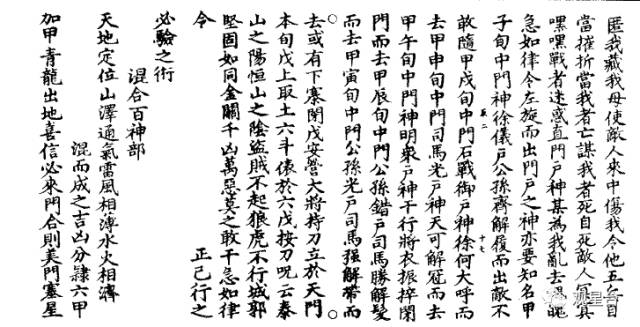 匿我藏我毋使敵人來中傷我令他五兵自
當摧折當我者亡謀我者死自死敵人冥冥
嘿嘿戰者迷惑直門戶神某為我亂去畢輒
急如律令左旋而出門戶之神亦要知名甲
子旬中門神徐儀戶公孫齊解履而出敵不
十七
敢隨甲戌旬中門石戰御戶神徐何大呼而
去甲申旬中門司馬光戶神天可解冠而去
甲午旬中門神明眾戶神干行將衣振捽閉
門而去甲辰旬中門公孫錯戶司馬勝解髮
而去甲寅旬中門公孫光戶司馬强解帶而
去或有下寨閉戊安營大將持刀立於天門
本旬戊上取土六斗俵於六戊按刀呪云泰
山之陽恒山之陰盜賊不起狼虎不行城郭
堅固如同金關千凶萬惡莫之敢干急如律
令 正己行之
必驗之術
混合百神部
天地定位山澤通氣雷風相薄水火相濟
混而成之吉凶分隸六甲
加甲青龍出地喜信必來門合則美門塞星
观星台